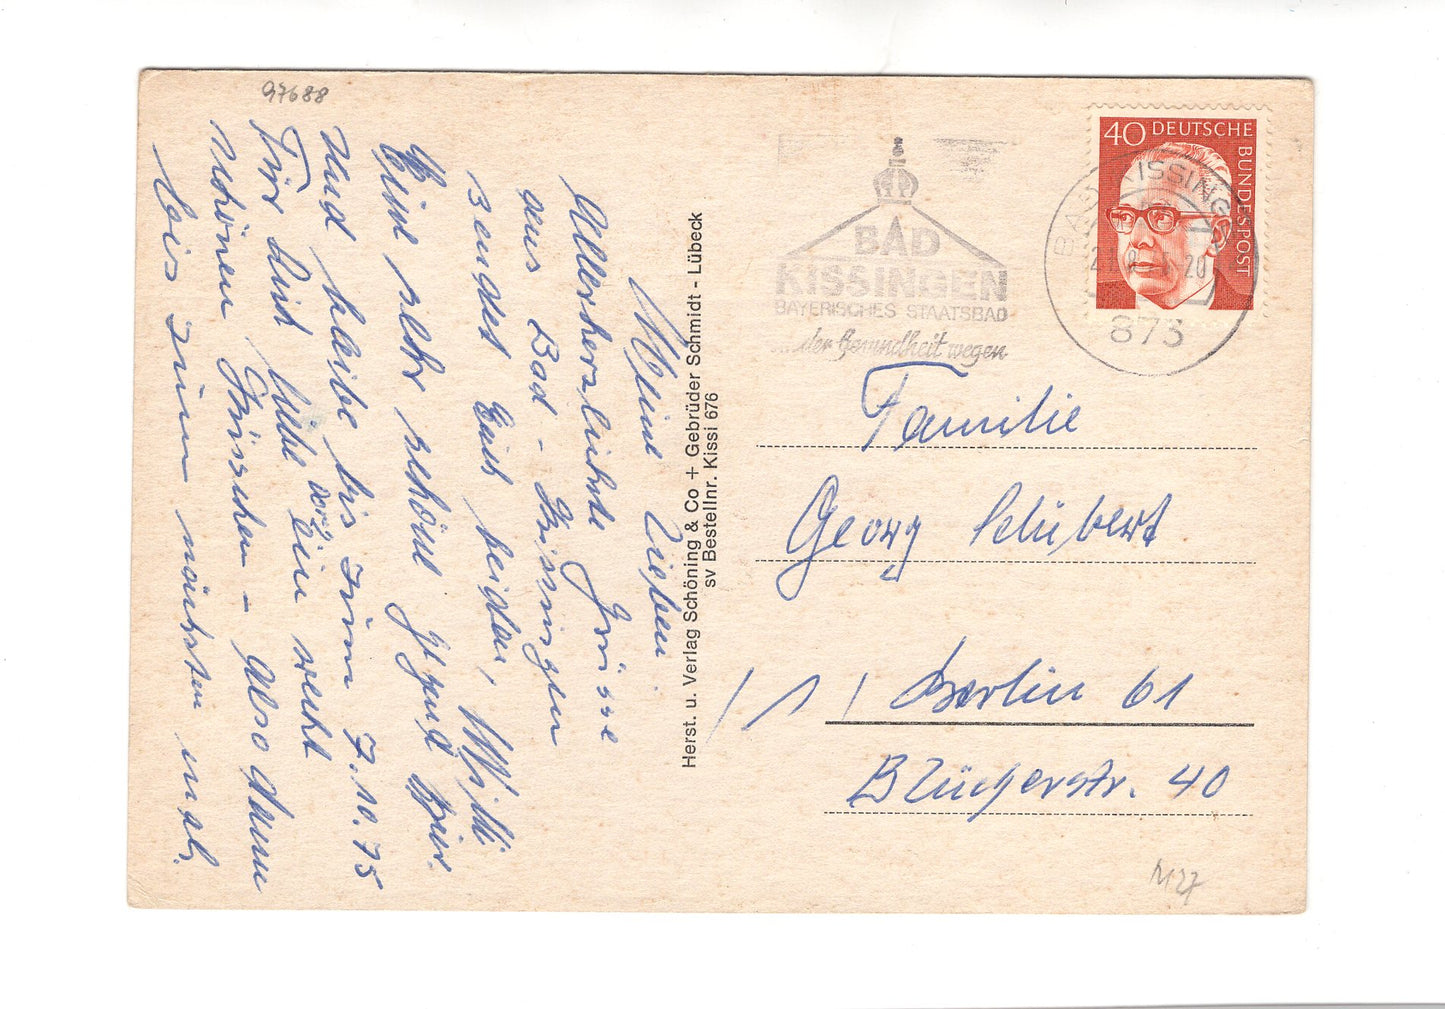 97688
Meine Lieben
Allerherzlichste Grüsse
aus Bad - Kissingen
sendet Euch beiden, Willi
Eine sehr schöne Jegend hier.
Und bleibe bis zum 7.10.75
Für Dich liebe Dorg. ein recht
schönen Grüsschen - Also dann
bis zum nächsten mal.
Herst. u. Verlag Schöning & Co + Gebrüder Schmidt - Lübeck
sv Bestellnr. Kissi 676
BAD
KISSINGEN
BAYERISCHES STAATSBAD
...der Gesundheit wegen
40 DEUTSCHE
BUNDESPOST
BAD KISSINGEN
873
Familie
Georg Schubert
1 Berlin 61
Blücherstr. 40
M27